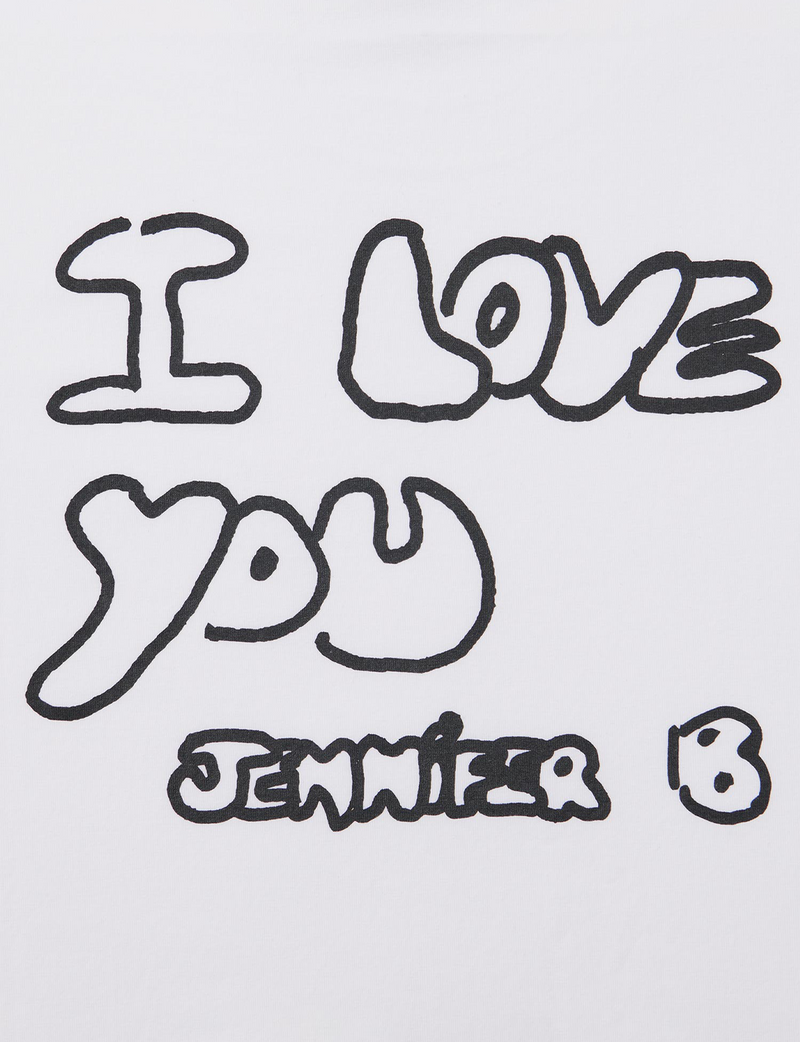 I LOVE
YOU
JENNiFER B